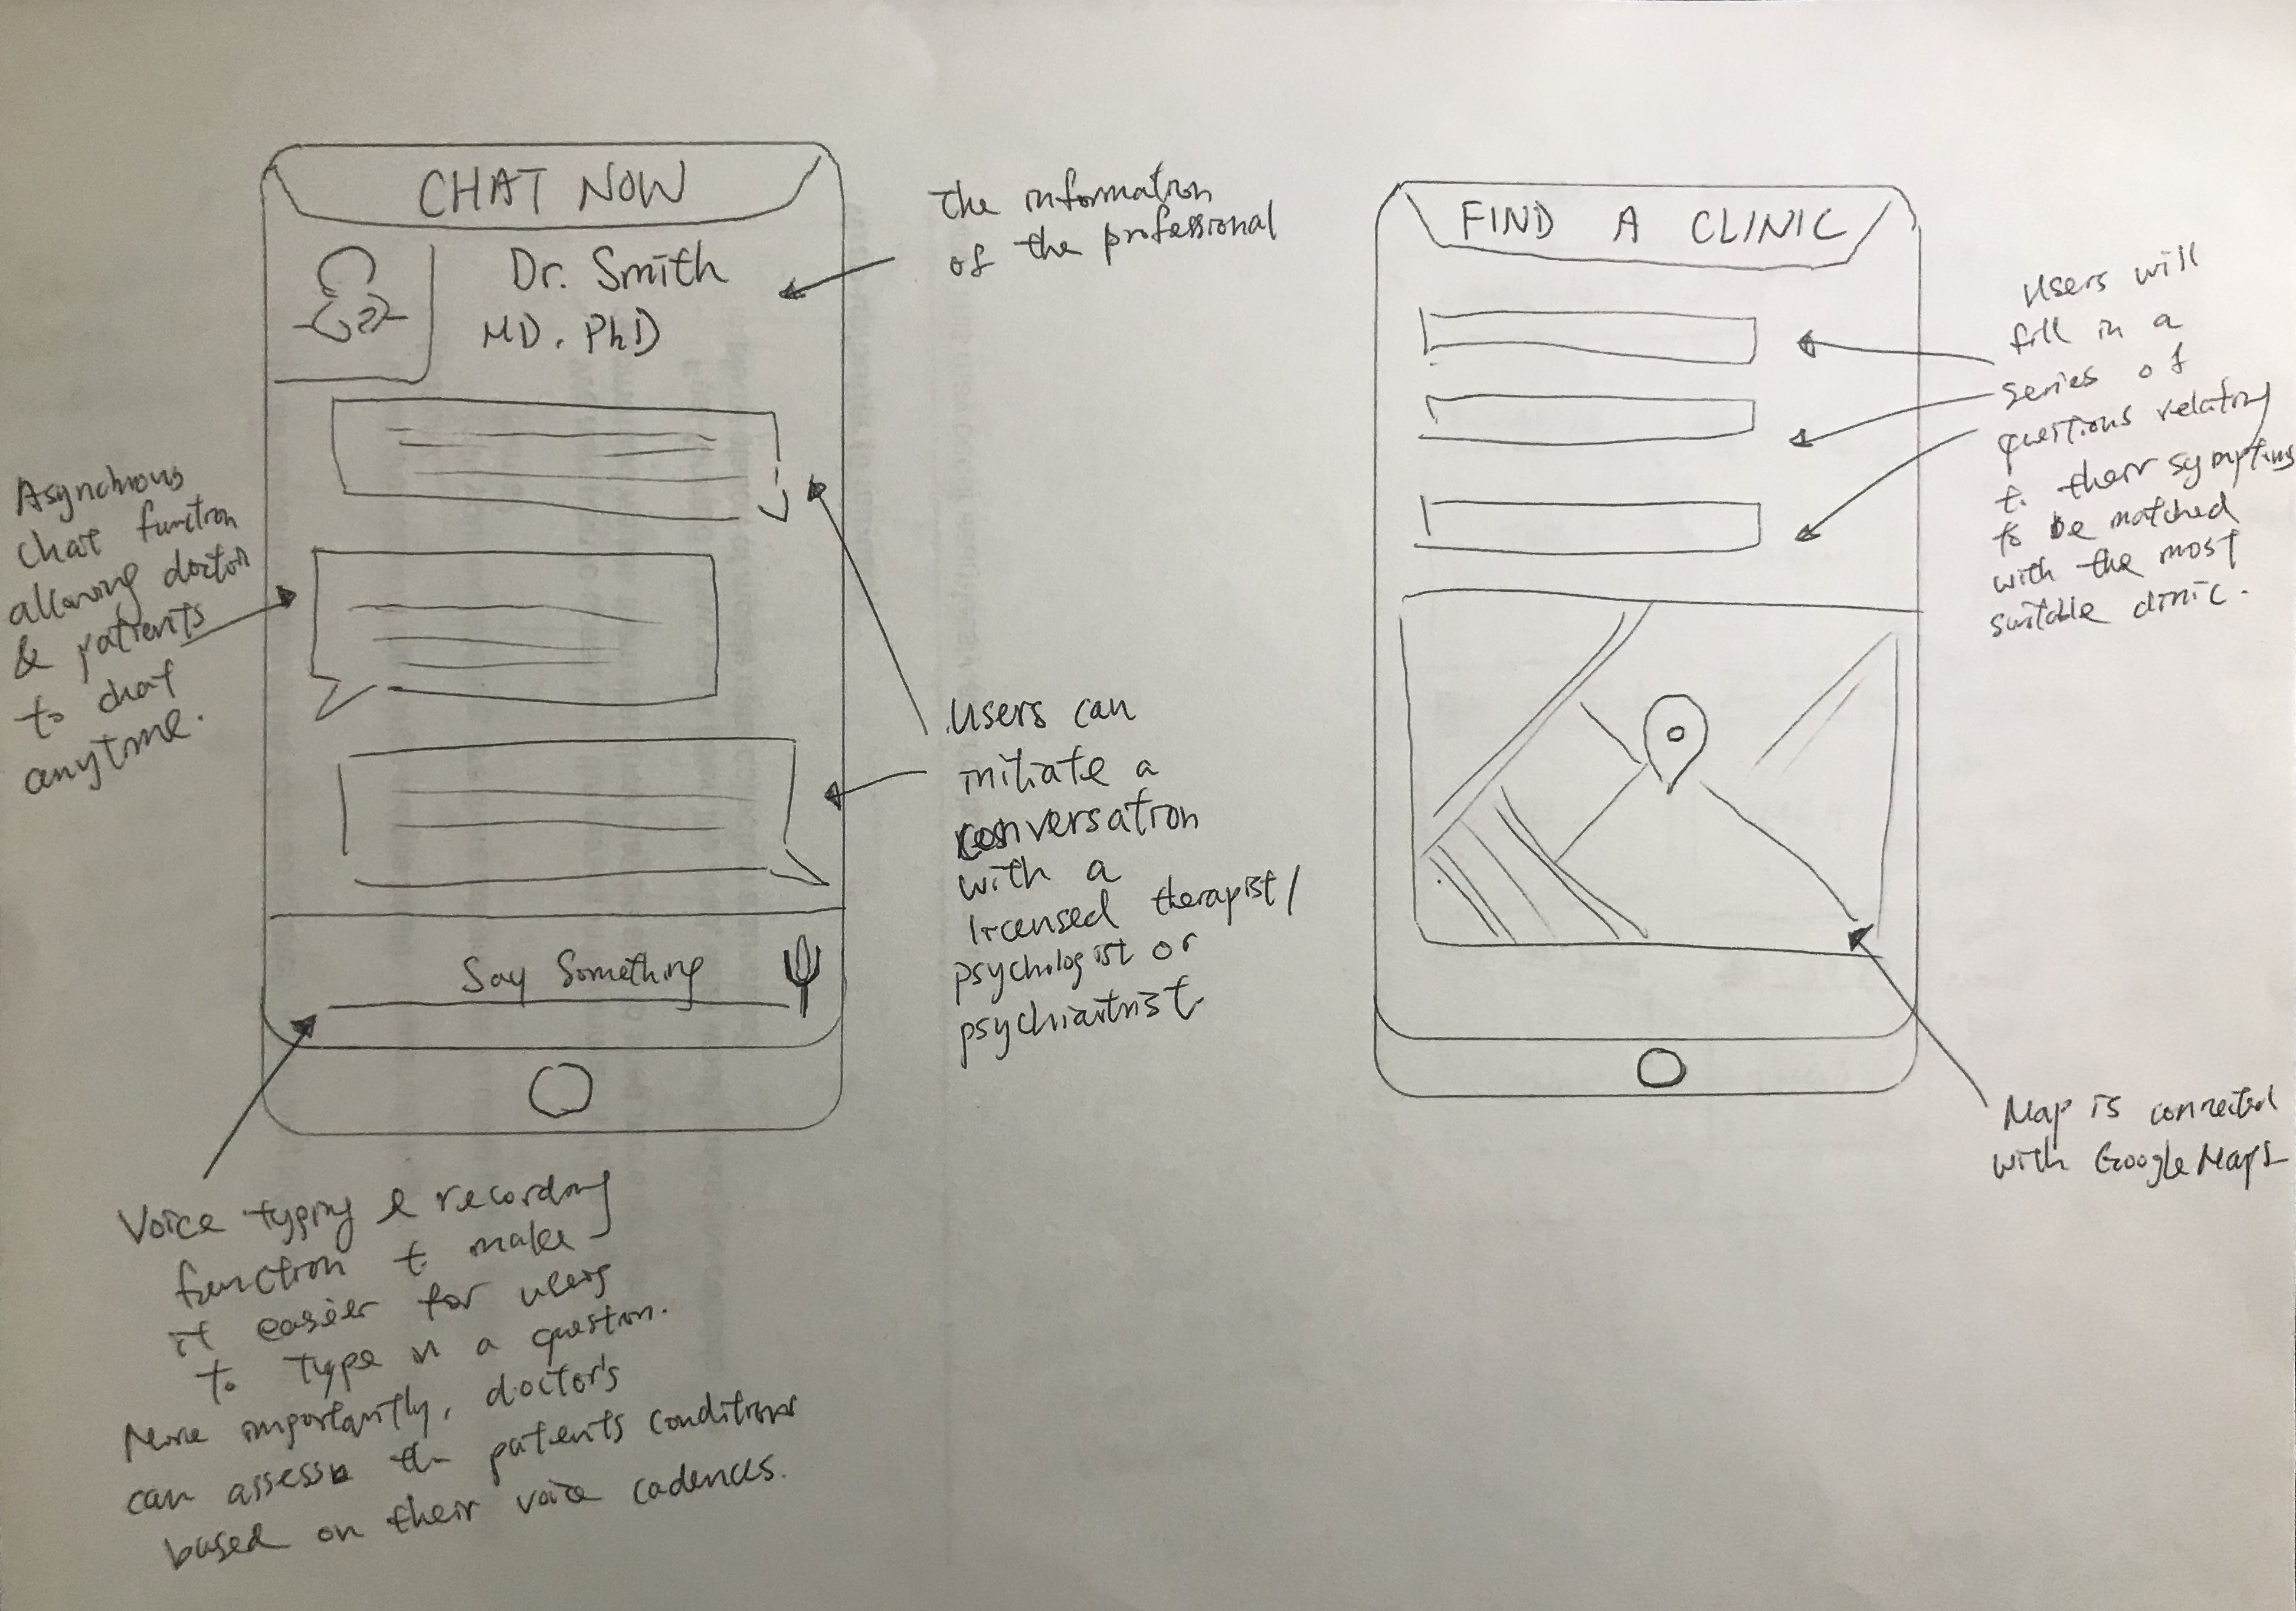 CHAT NOW
Dr. Smith
MD. PhD
Say Something
The information
of the professional
Asynchrous
chat function
allowing doctor
& patients
to chat
anytime.
Users can
initiate a
conversation
with a
licensed therapist/
psychologist or
psychiatrist.
Voice typing & recording
function to make
it easier for users
to type in a question.
More importantly, doctor's
can assess the patients conditions
based on their voice cadences.
FIND A CLINIC
Users will
fill in a
series of
questions relating
to their symptoms
to be matched
with the most
suitable clinic.
Map is connected
with Google Maps